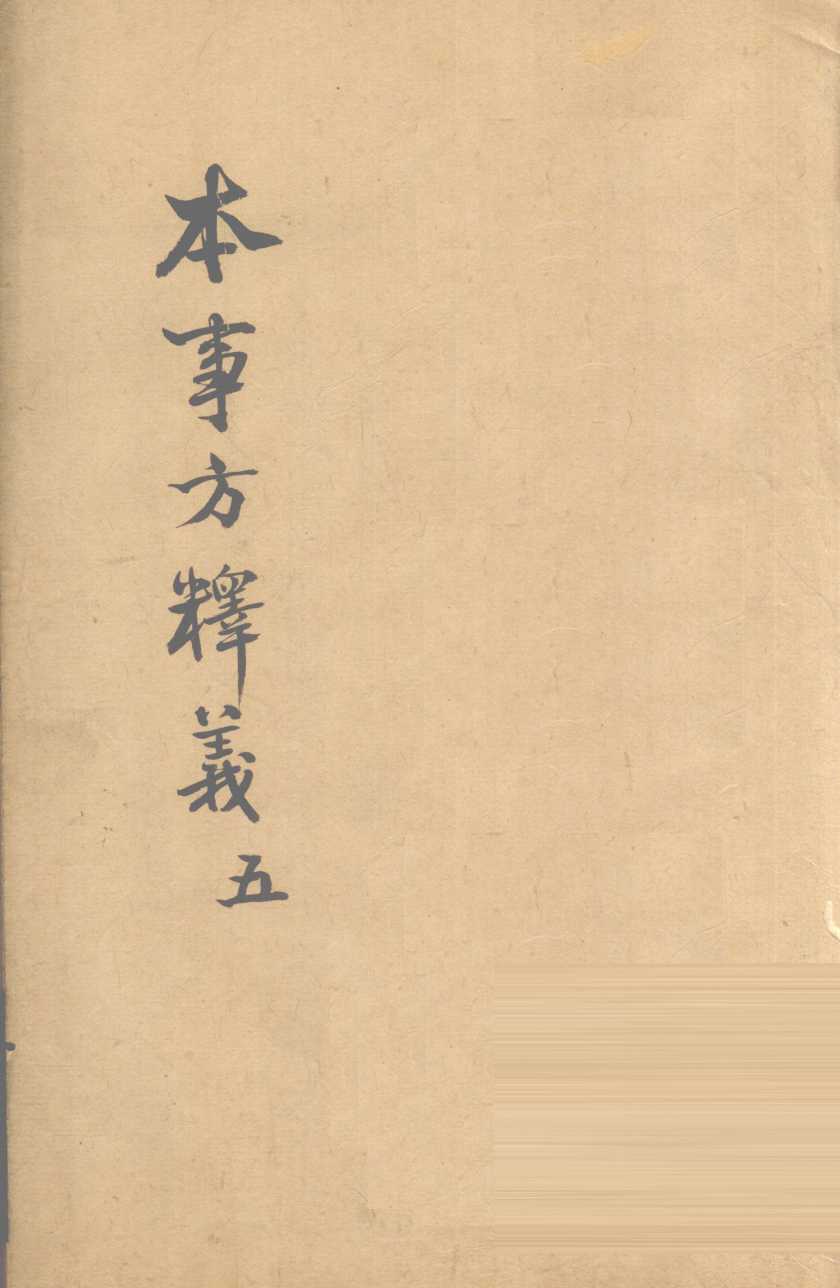 本事方釋義 五